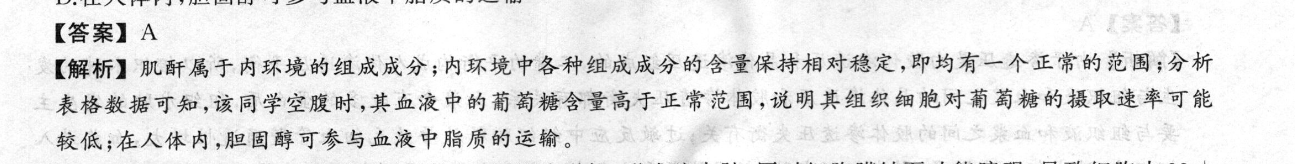 D.在人体内,胆固醇可参与血液中脂质的运输
【答案】A
【解析】肌酐属于内环境的组成成分;内环境中各种组成成分的含量保持相对稳定,即均有一个正常的范围;分析
表格数据可知,该同学空腹时,其血液中的葡萄糖含量高于正常范围,说明其组织细胞对葡萄糖的摄取速率可能
较低;在人体内,胆固醇可参与血液中脂质的运输。